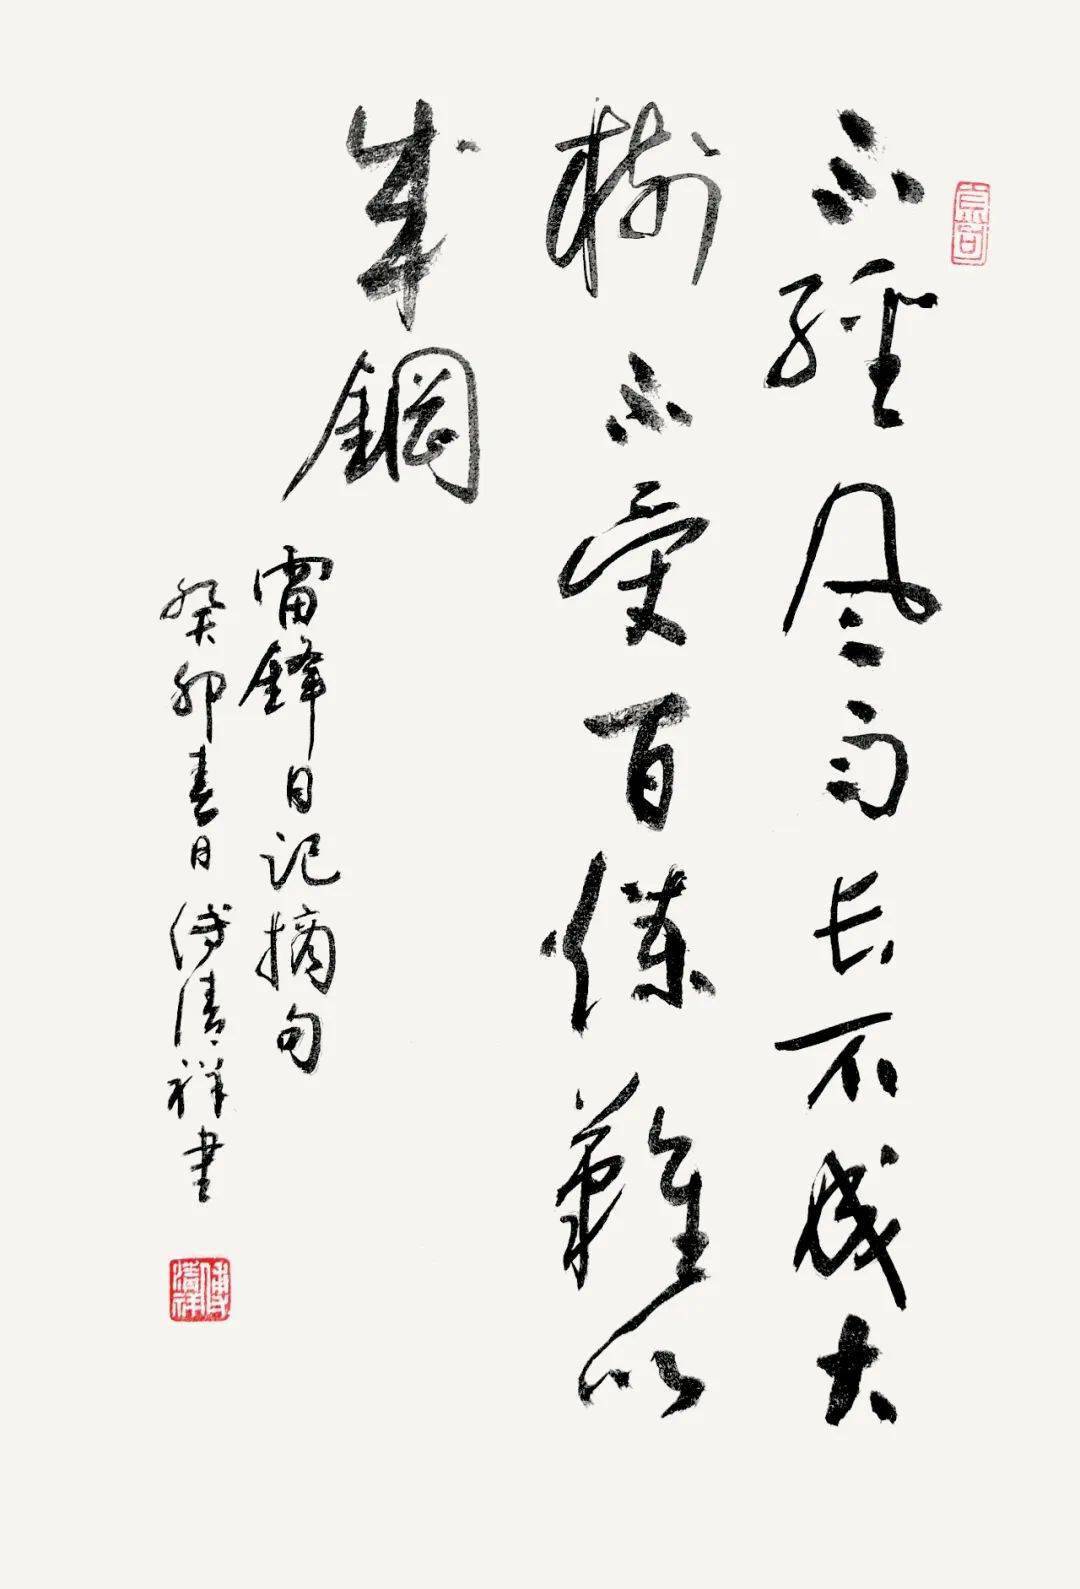 不經风雨长不成大
樹不受百煉難以
成鋼
雷鋒日記摘句
癸卯春日傅清祥書
傅清祥